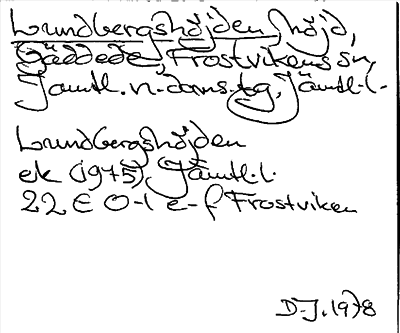 Lundbergshöjden, höjd,
Gäddede, Frostvikens sn,
Jämtl. n. doms-tg, Jämtl. l.
Lundbergshöjden
ek (1975) Jämtl. l.
22 E 0-1 e-f Frostviken
D.J. 1978